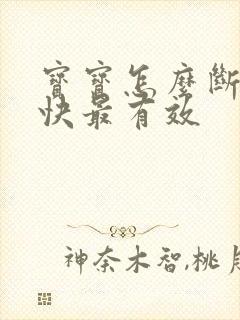 寶寶怎麼斷
快最有效
神奈木智,桃月